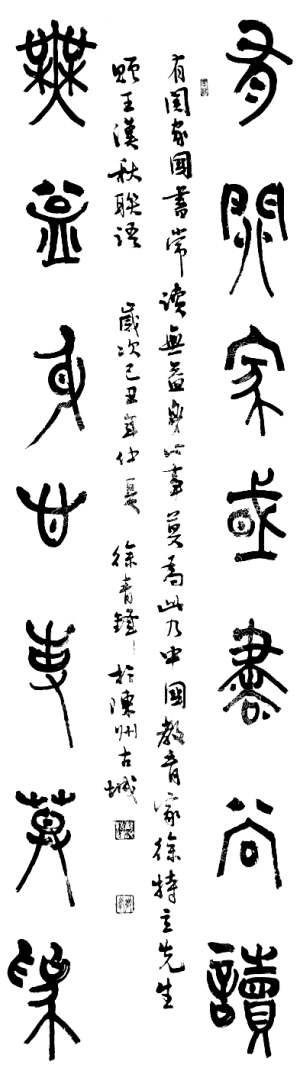 有関家國書常讀
有関家國書常讀無益身心事莫為此乃中國教育家徐特立先生
贈王漢秋聯語 歲次己丑年仲夏 徐青鋒於陳州古城
無益身心事莫為